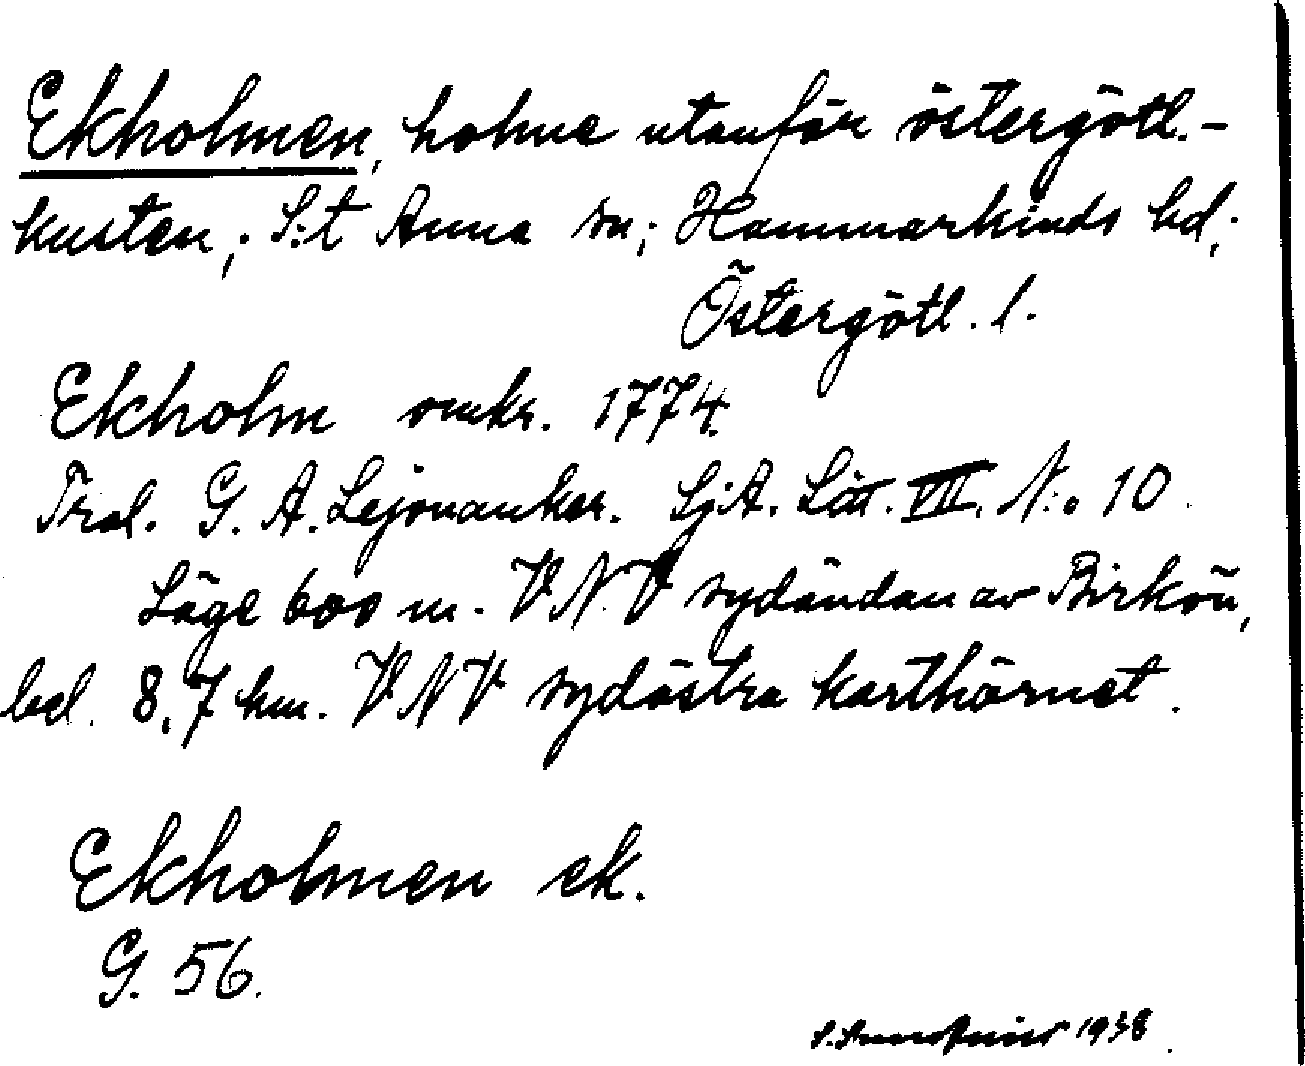 Ekholmen, holme utanför östergötl.-
kusten; S:t Anna sn; Hammarkinds hd;
Östergötl. l.
Ekholm omkr. 1774.
Trol. G. A. Lejonanker. SjA. Lätt. VII. N:o 10.
Läge 600 m. VNV sydändan av Birkön,
bel. 8,7 km. VNV sydöstra karthörnet.
Ekholmen ek.
G. 56.
1938.